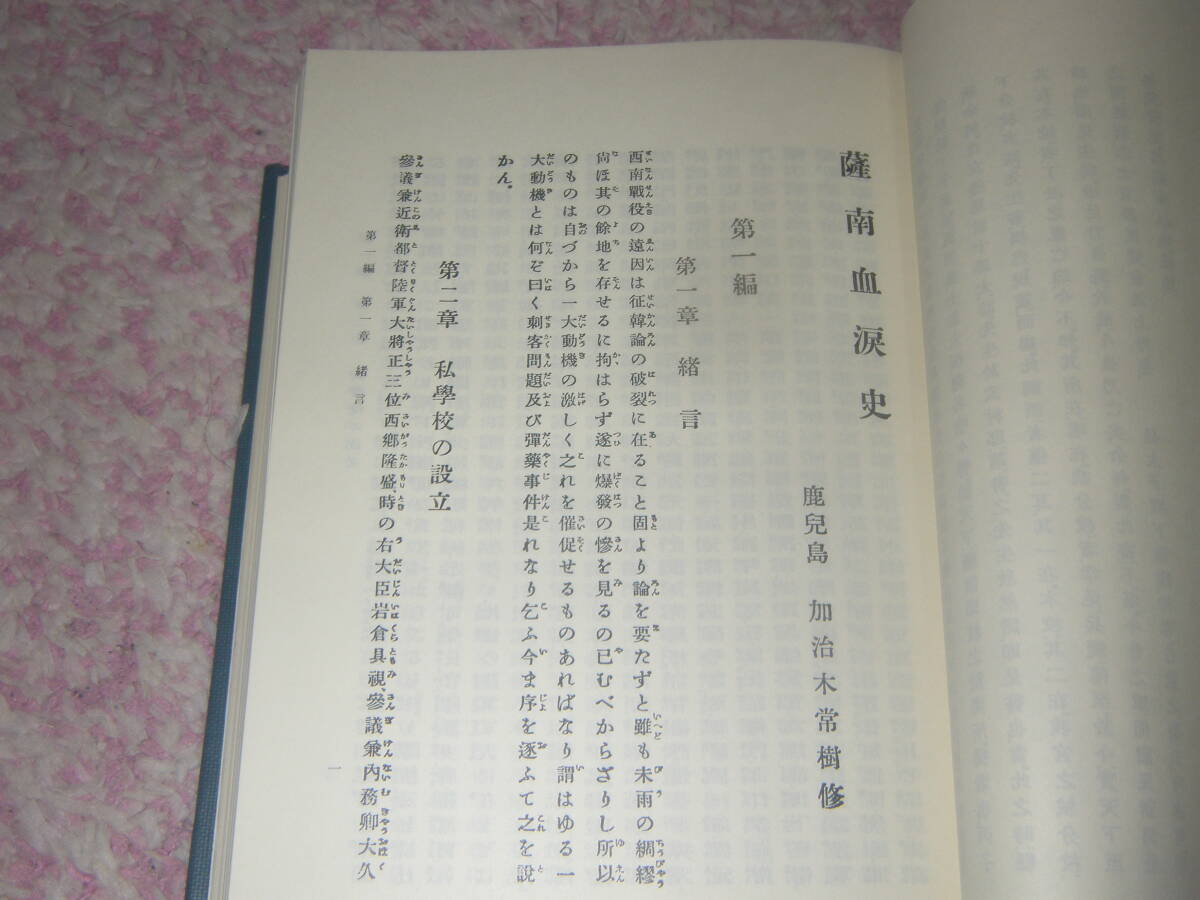 薩南血淚史
鹿兒島 加治木常樹修
第一編
第一章 緖言
西南戰役の遠因は征韓論の破裂に在ること固より論を要たずと雖も未雨の綢繆
尙ほ其の餘地を存せるに拘はらず遂に爆發の慘を見るの已むべからざりし所以
のものは自づから一大動機の激しく之れを催促せるものあればなり謂はゆる一
大動機とは何ぞ曰く刺客問題及び彈藥事件是れなり乞ふ今ま序を逐ふて之を說
かん。
第二章 私學校の設立
參議兼近衛都督陸軍大將正三位西鄕隆盛、時の右大臣岩倉具視、參議兼內務卿大久
第一編 第一章 緖言
一